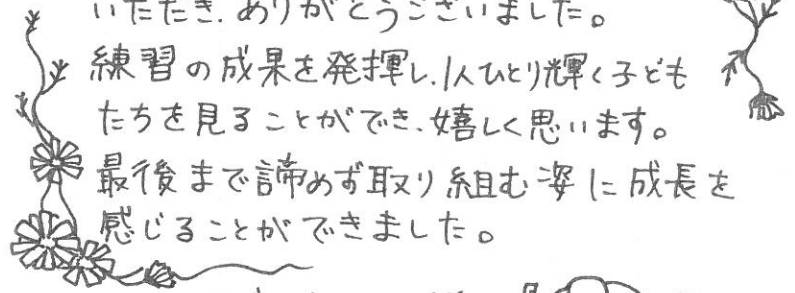 いただき、ありがとうございました。
練習の成果を発揮し、1人ひとり輝く子ども
たちを見ることができ、嬉しく思います。
最後まで諦めず取り組む姿に成長を
感じることができました。